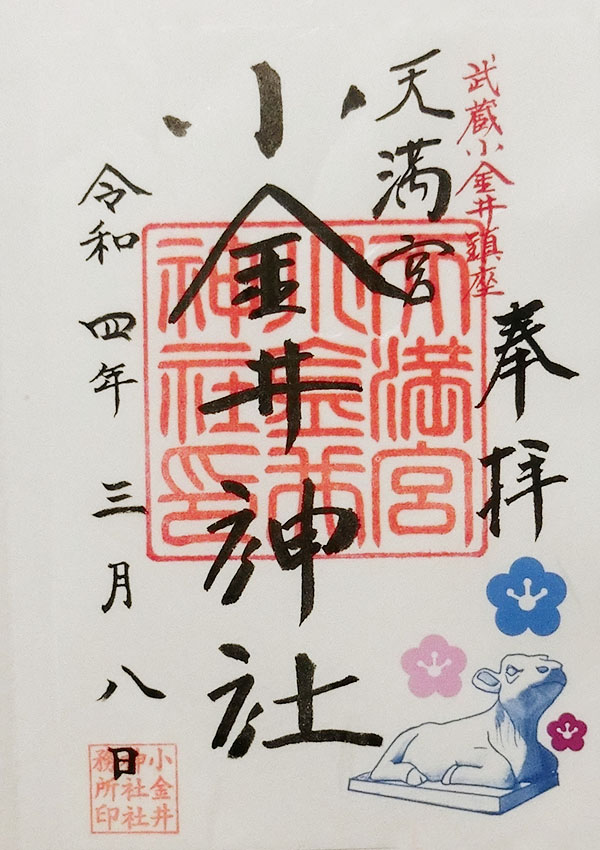 武蔵小金井鎮座
奉拝
天満宮
小金井神社
令和四年三月八日
天満宮
小金井
神社印
小金井
神社社
務所印